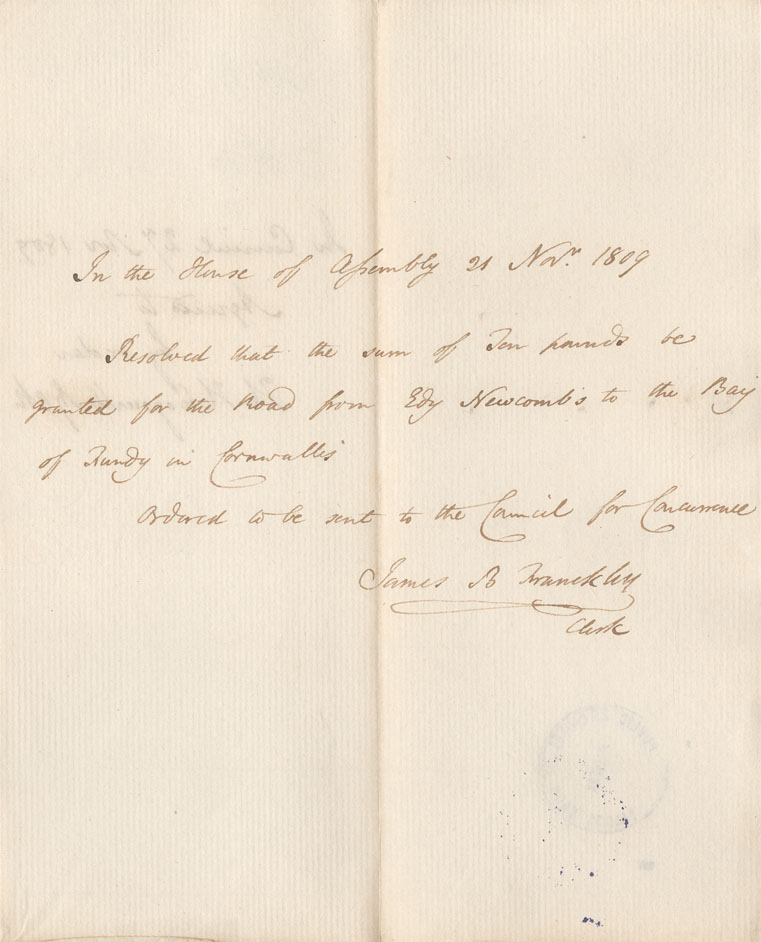 In the House of Assembly 21 Novr. 1809
Resolved that the sum of Ten pounds be
granted for the Road from Edy Newcombs to the Bay
of Fundy in Cornwallis
Ordered to be sent to the Council for Concurrence
James B Franckley
Clerk